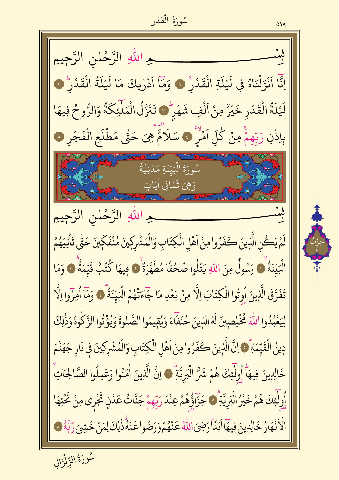 سُورَةُ الْقَدْرِ
٥٩٨
بِسْمِ اللهِ الرَّحْمٰنِ الرَّحِيمِ
اِنَّا اَنْزَلْنَاهُ فِى لَيْلَةِ الْقَدْرِ ١ وَمَا اَدْرٰيكَ مَا لَيْلَةُ الْقَدْرِ ٢
لَيْلَةُ الْقَدْرِ خَيْرٌ مِنْ اَلْفِ شَهْرٍ ٣ تَنَزَّلُ الْمَلٰٓئِكَةُ وَالرُّوحُ فِيهَا
بِاِذْنِ رَبِّهِمْ مِنْ كُلِّ اَمْرٍ ٤ سَلَامٌ هِىَ حَتّٰى مَطْلَعِ الْفَجْرِ ٥
سُورَةُ الْبَيِّنَةِ مَدَنِيَّةٌ
وَهِىَ ثَمَانِى اٰيَاتٍ
بِسْمِ اللهِ الرَّحْمٰنِ الرَّحِيمِ
لَمْ يَكُنِ الَّذِينَ كَفَرُوا مِنْ اَهْلِ الْكِتَابِ وَالْمُشْرِكِينَ مُنْفَكِّينَ حَتّٰى تَأْتِيَهُمُ
الْبَيِّنَةُ ١ رَسُولٌ مِنَ اللهِ يَتْلُوا صُحُفًا مُطَهَّرَةً ٢ فِيهَا كُتُبٌ قَيِّمَةٌ ٣ وَمَا
تَفَرَّقَ الَّذِينَ اُوتُوا الْكِتَابَ اِلَّا مِنْ بَعْدِ مَا جَاءَتْهُمُ الْبَيِّنَةُ ٤ وَمَا اُمِرُوا اِلَّا
لِيَعْبُدُوا اللهَ مُخْلِصِينَ لَهُ الدِّينَ حُنَفَاءَ وَيُقِيمُوا الصَّلٰوةَ وَيُؤْتُوا الزَّكٰوةَ وَذٰلِكَ
دِينُ الْقَيِّمَةِ ٥ اِنَّ الَّذِينَ كَفَرُوا مِنْ اَهْلِ الْكِتَابِ وَالْمُشْرِكِينَ فِى نَارِ جَهَنَّمَ
خَالِدِينَ فِيهَا اُولٰٓئِكَ هُمْ شَرُّ الْبَرِيَّةِ ٦ اِنَّ الَّذِينَ اٰمَنُوا وَعَمِلُوا الصَّالِحَاتِ
اُولٰٓئِكَ هُمْ خَيْرُ الْبَرِيَّةِ ٧ جَزَاؤُهُمْ عِنْدَ رَبِّهِمْ جَنَّاتُ عَدْنٍ تَجْرِى مِنْ تَحْتِهَا
الْاَنْهَارُ خَالِدِينَ فِيهَا اَبَدًا رَضِىَ اللهُ عَنْهُمْ وَرَضُوا عَنْهُ ذٰلِكَ لِمَنْ خَشِىَ رَبَّهُ ٨
سُورَةُ الزِّلْزَالِ